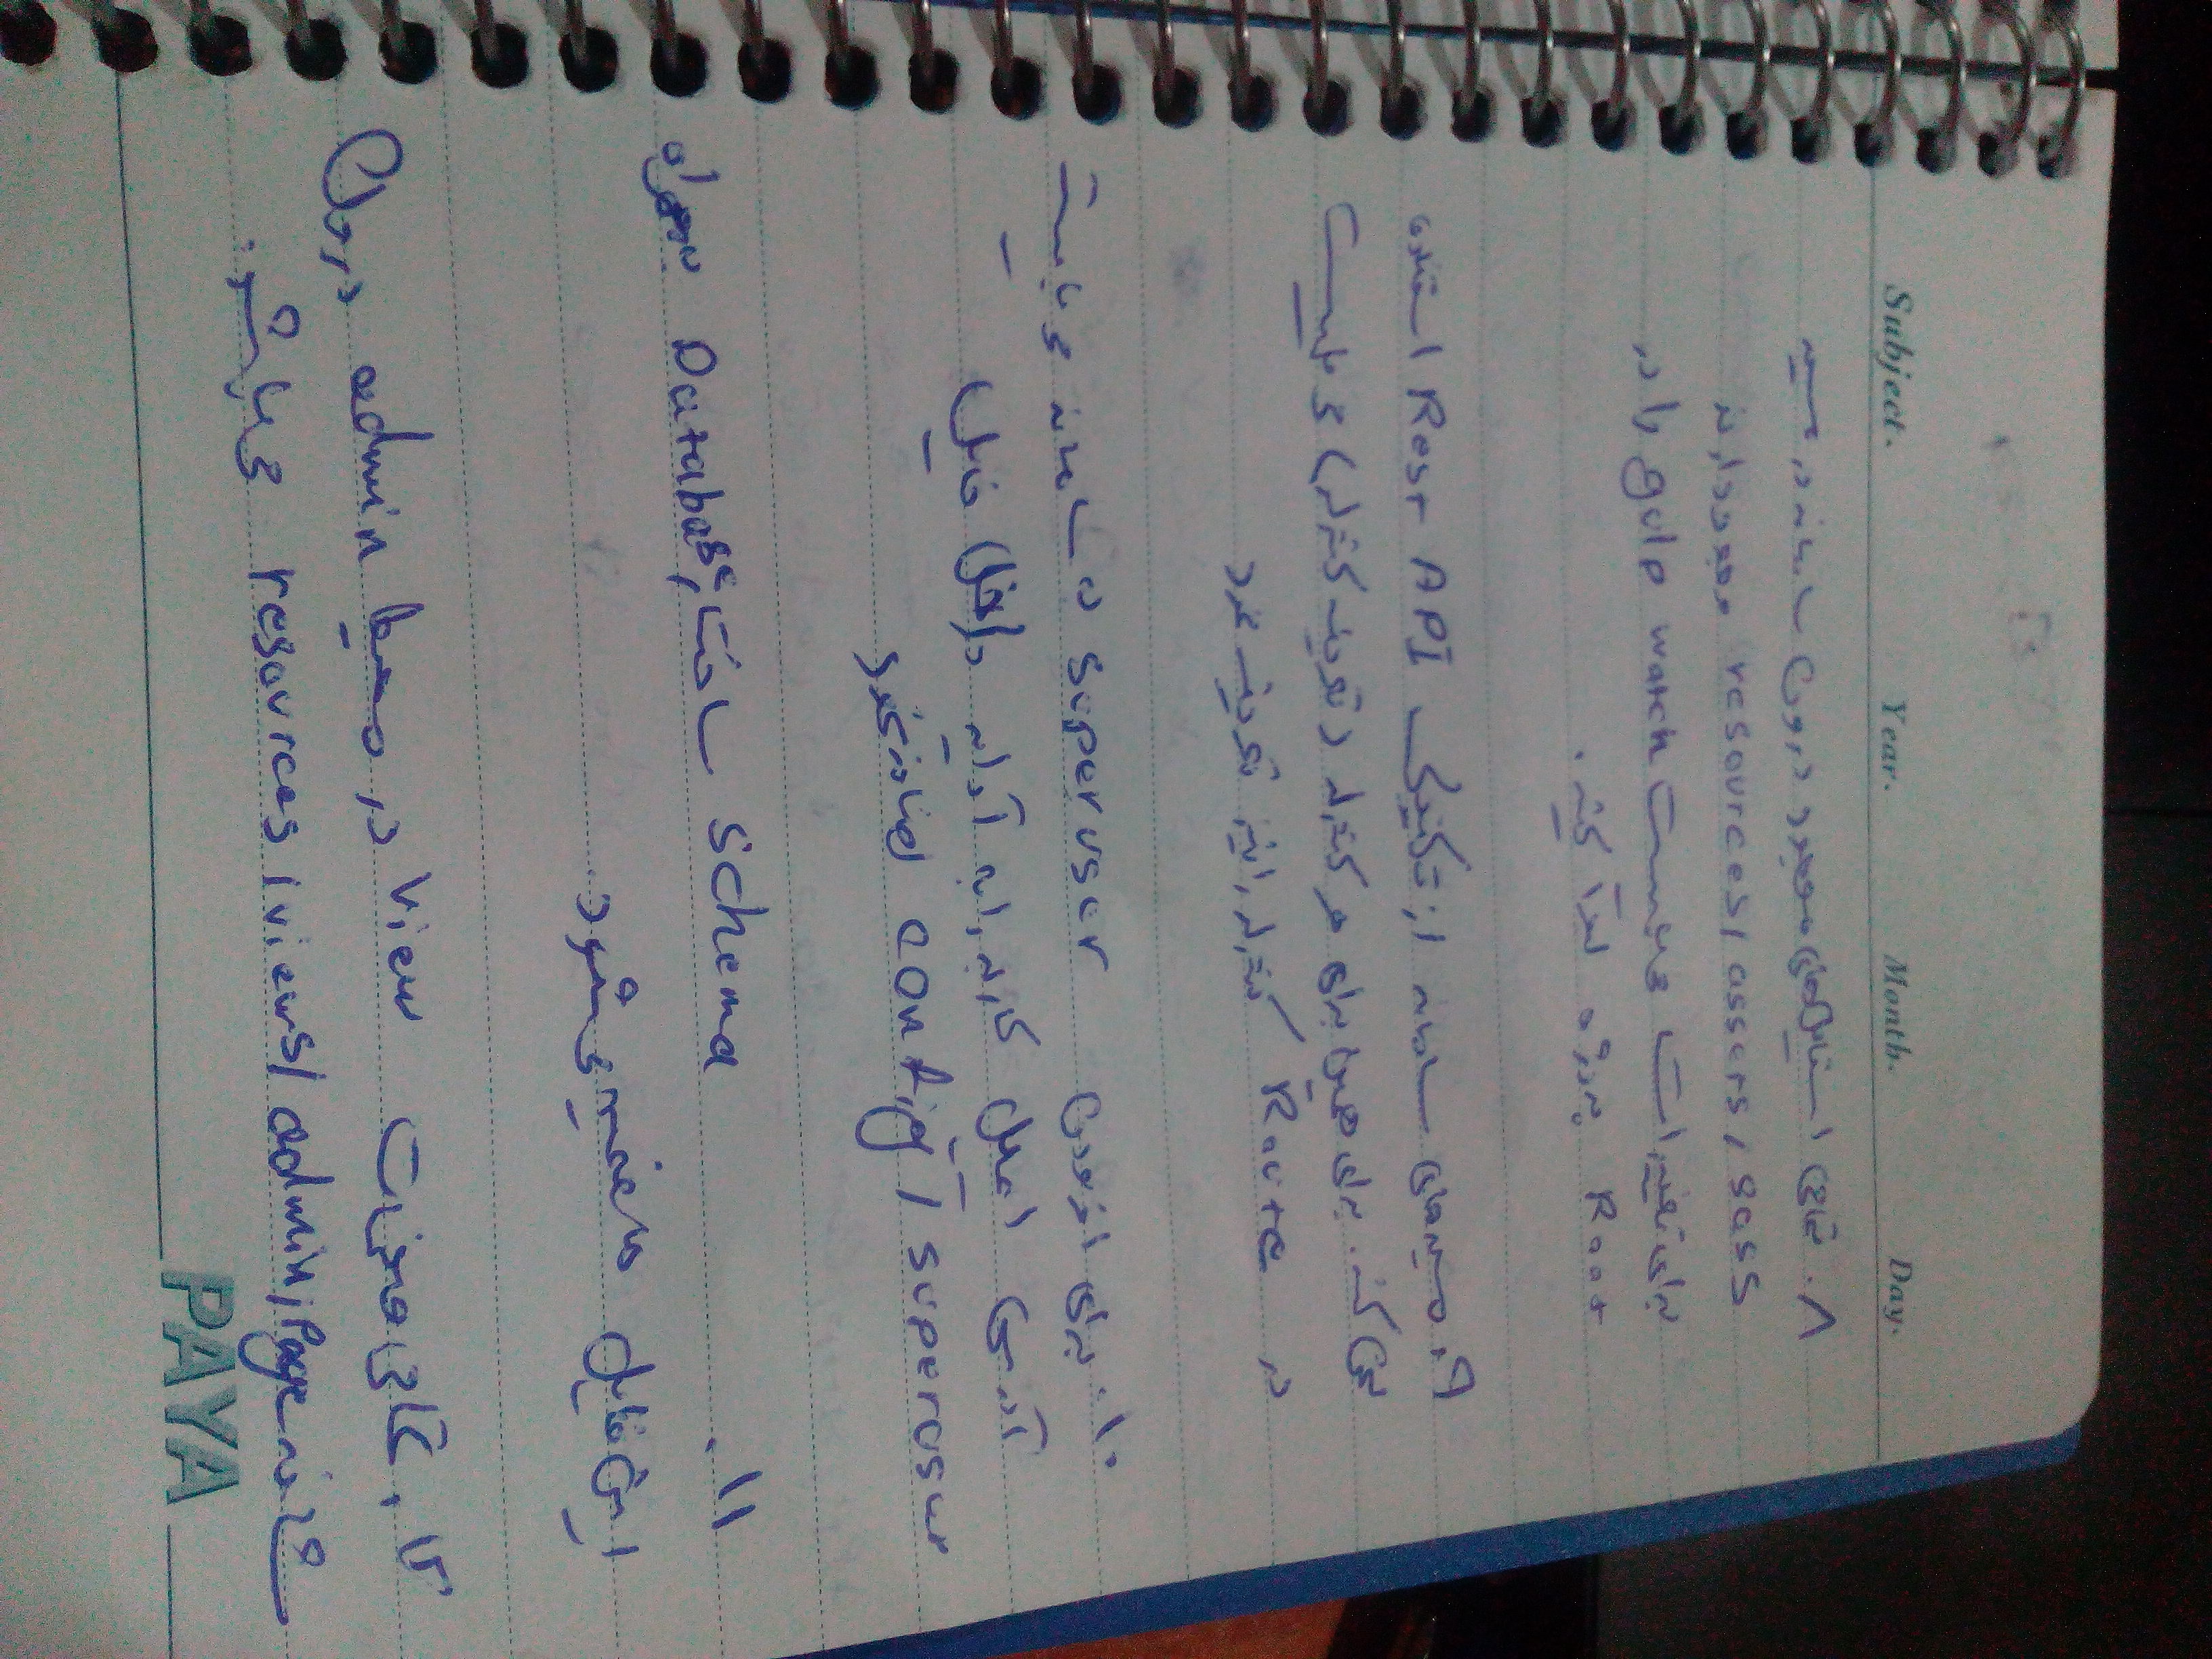 Subject. Year. Month. Day.
۸. تمامی استایل‌های موجود درون سامانه در مسیر
resources/assets/sass وجود دارند
برای تغییرات می‌بایست gulp watch را در
Root پروژه اجرا کنید.
۹. مسیرهای سامانه از تکنیک Rest API استفاده
می‌کند. برای همین برای هر کنترلر (تعریف کنترلر) می‌بایست
در Route کنترلر را نیز تعریف نمود
۱۰. برای افزودن superuser به سامانه می‌بایست
آدرس ایمیل کاربر را به آرایه داخل فایل
config/superuser اضافه نمود
۱۱. schema ساختار Database به همراه
این فایل ضمیمه می‌شود.
۱۲. تمامی صفحات view در محیط admin درون
شاخه resources/views/admin/page می‌باشد.
PAYA